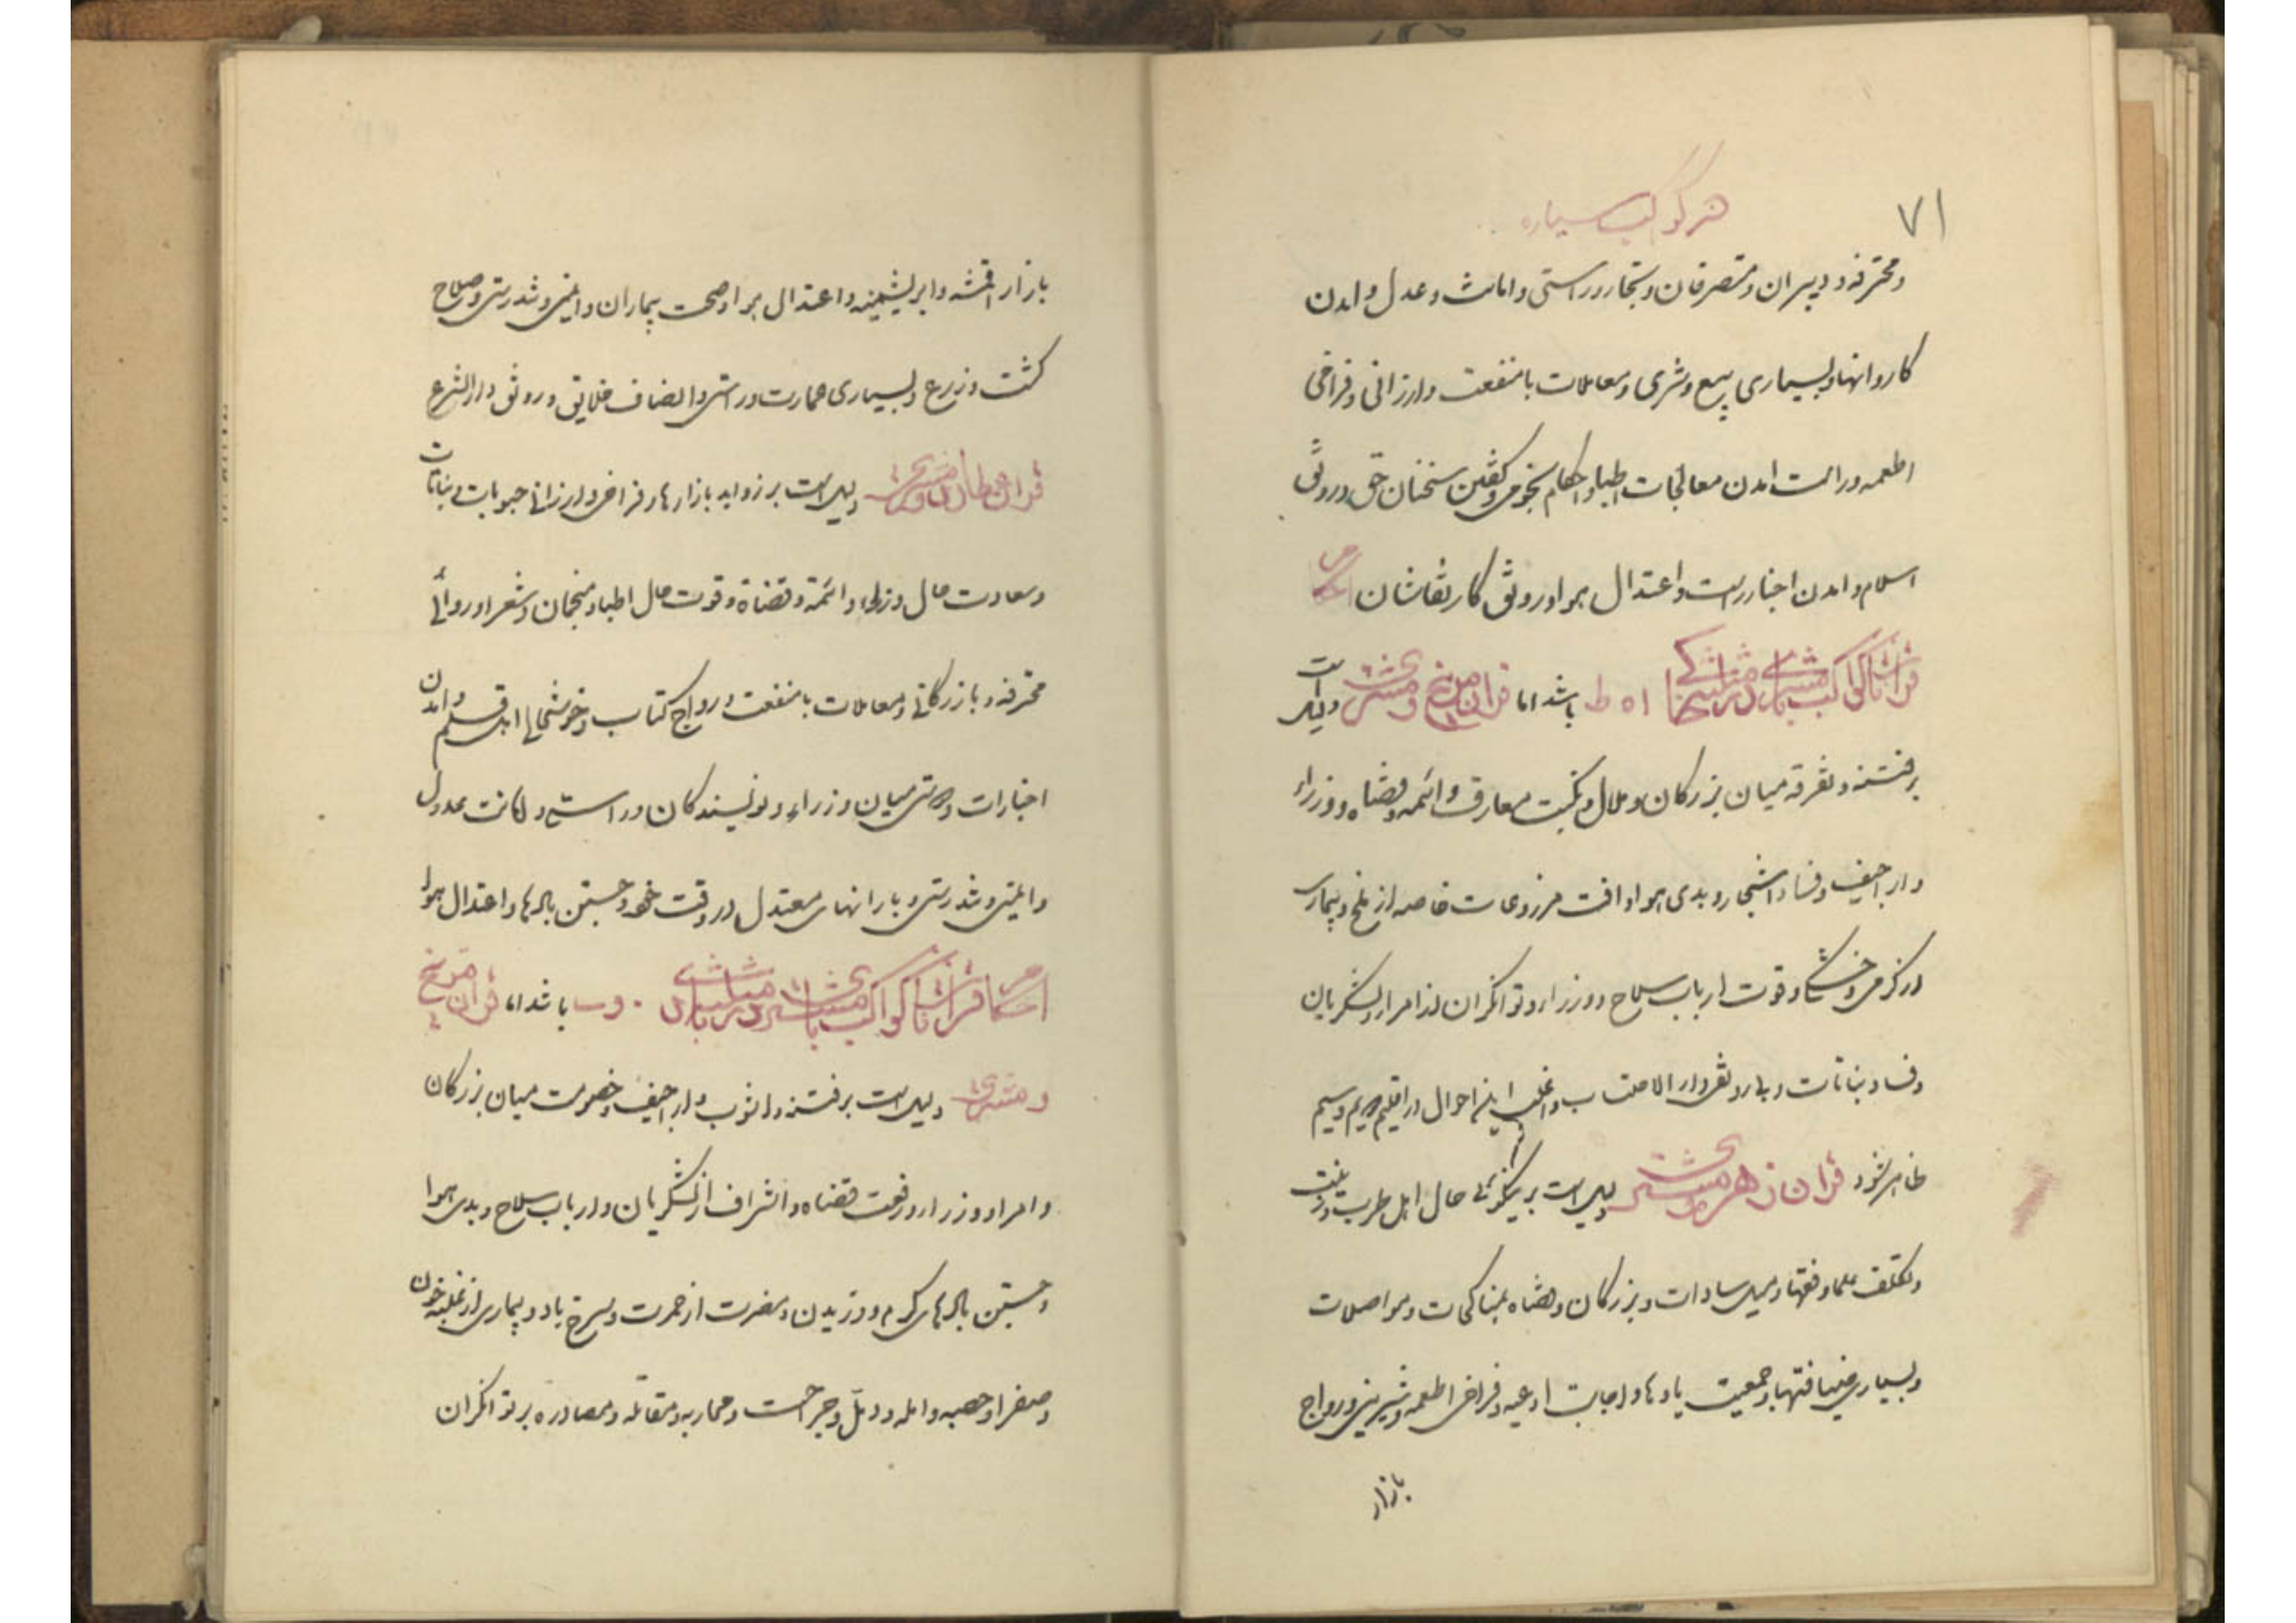 ۷۱
هر کواکب سیاره
و محترفه و دبیران و متصرفان و تجار و راستی و امانت و عدل و امدن
کاروانها و بسیاری بیع و شری و معاملات با منفعت و ارزانی و فراخی
اطعمه و راست امدن معالجات اطبا و احکام نجومی و گفتن سخنان حق و رونق
اسلام و امدن اخبار راست و اعتدال هوا و رونق کار نقاشان احکام
قرانات کواکب با مشتری در مثلثه خاکی ا ه ط باشد اما قران مریخ و مشتری دلیل است
بر فتنه و تفرقه میان بزرگان و ملال و نکبت معارف و ائمه و قضاه و وزراء
و اراجیف و فساد اشجار و بدی هوا و افت مزروعات خاصه از ملخ و بیماری
از گرمی و خشکی و قوت ارباب سلاح و وزرا و توانگران از امرا و لشگریان
و فساد نباتات و بی رونقی دار الاحتساب و اغلب این احوال در اقلیم دویم و سیم
ظاهر شود قران زهره و مشتری دلیل است بر نیکوئی حال اهل طرب و زینت
و تکلف علما و فقها و میل سادات و بزرگان و قضاه بمناکحات و مواصلات
و بسیاری ضیافتها و جمعیت یادها و اجابت ادعیه و فراخی اطعمه و شیرینی و رواج
بازار
بازار اقمشه و ابریشمینه و اعتدال هوا و صحت بیماران و ایمنی و تندرستی و صلاح
کشت و زرع و بسیاری عمارت و راستی و انصاف خلایق و رونق دار الشرع
قران عطارد و مشتری دلیل است بر زواید بازارها و فراخی و ارزانی حبوبات و نباتات
و سعادت حال وزراء و ائمه و قضاة و قوت حال اطبا و منجمان و شعرا و روائی
محترفه و بازرگانی و معاملات با منفعت و رواج کتاب و خوشحالی اهل قلم و امدن
اخبارات و دوستی میان وزراء و نویسندگان و راستی و امانت عدول
و ایمنی و تندرستی و بارانهای معتدل در وقت خود و جستن بادها و اعتدال هوا
احکام قرانات کواکب با مشتری در مثلثه بادی ۰ و ب باشد اما قران مریخ
و مشتری دلیل است بر فتنه و اشوب و اراجیف و خصومت میان بزرگان
و امرا و وزرا و رفعت قضاه و اشراف از لشگریان و ارباب سلاح و بدی هوا
و جستن بادهای گرم و وزیدن و مضرت از حمرت و سرخ باد و بیماری از غلبه خون
و صفرا و حصبه و ابله و دمل و جراحت و محاربه و مقاتله و مصادره بر توانگران